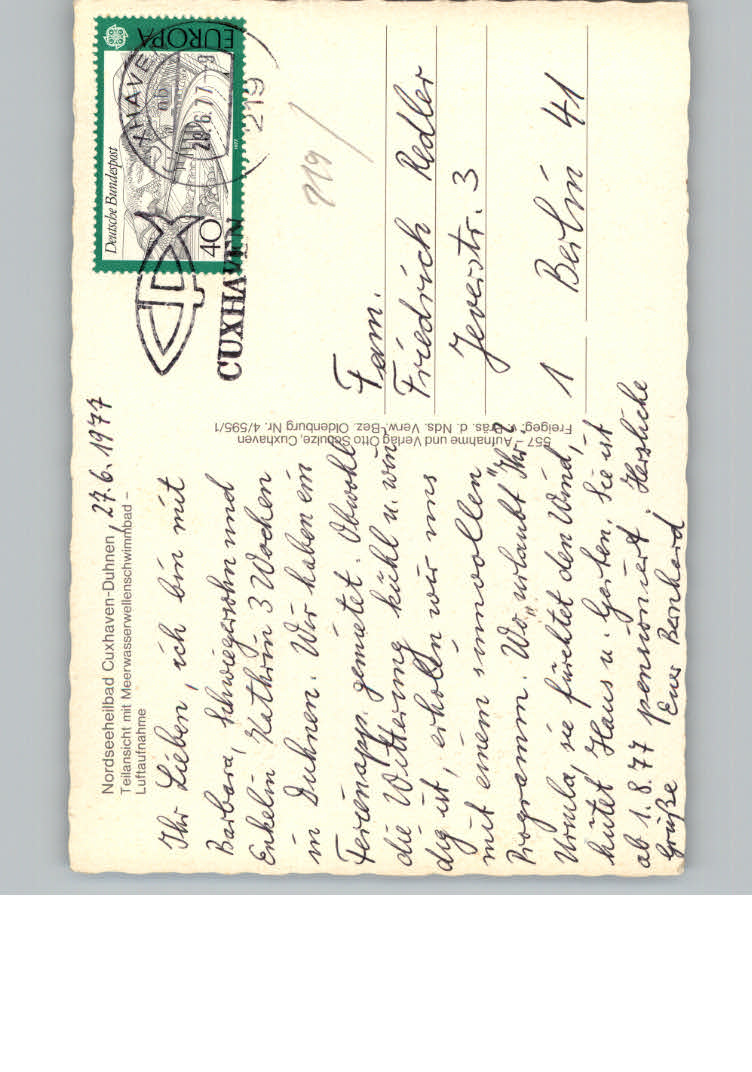 Nordseeheilbad Cuxhaven-Duhnen, 27.6.1977
Teilansicht mit Meerwasserwellenschwimmbad –
Luftaufnahme
Ihr Lieben, ich bin mit
Barbara, Schwiegersohn und
Enkelin Kathrin 3 Wochen
in Duhnen. Wir haben ein
Ferienapp. gemietet. Obwohl
die Witterung kühl u. win
dig ist, erholen wir uns
mit einem sinnvollen
Programm. Wo „urlaubt" Ihr?
Ursula sie fürchtet den Wind,
hütet Haus u. Garten. Sie ist
ab 1.8.77 pensioniert. Herzliche
Grüße Euer Bernhard
557 – Aufnahme und Verlag Otto Schulze, Cuxhaven
Freigeg. v. Präs. d. Nds. Verw.-Bez. Oldenburg Nr. 4/595/1
Deutsche Bundespost
40
EUROPA
1977
CUXHAVEN
219
CUXHAVEN
219/
Fam.
Friedrich Redler
Jeverstr. 3
1 Berlin 41